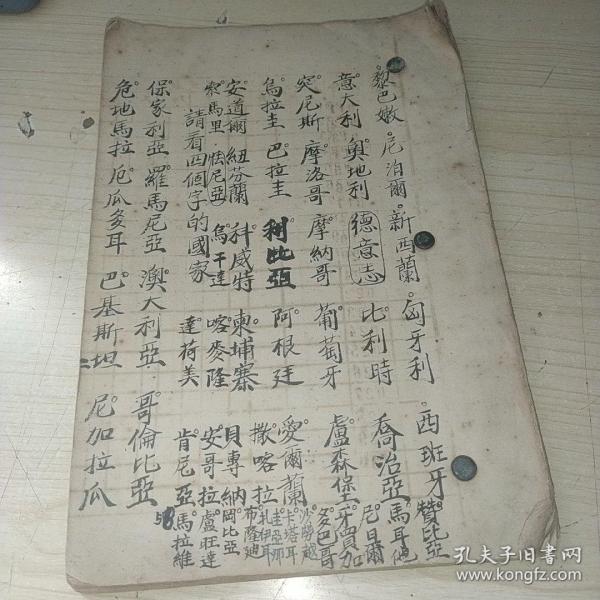 黎巴嫩 尼泊爾 新西蘭 匈牙利 西班牙 贊比亞
意大利 奧地利 德意志 比利時 喬治亞 馬耳他
突尼斯 摩洛哥 摩納哥 葡萄牙 盧森堡 牙買加 尼日爾
烏拉圭 巴拉圭 利比亞 阿根廷 愛爾蘭 沙勞越 多巴哥
安道爾 紐芬蘭 科威特 柬埔寨 撒喀拉 圭亞那 卡塔耳
索馬里 怯尼亞 烏干達 喀麥隆 貝專納 布隆迪 扎伊耳
請看四個字的國家 達荷美 安哥拉 盧旺達 岡比亞
肯尼亞 馬拉維
保家利亞 羅馬尼亞 澳大利亞 哥倫比亞
58
危地馬拉 厄瓜多耳 巴基斯坦 尼加拉瓜
孔夫子旧书网
www.kongfz.com